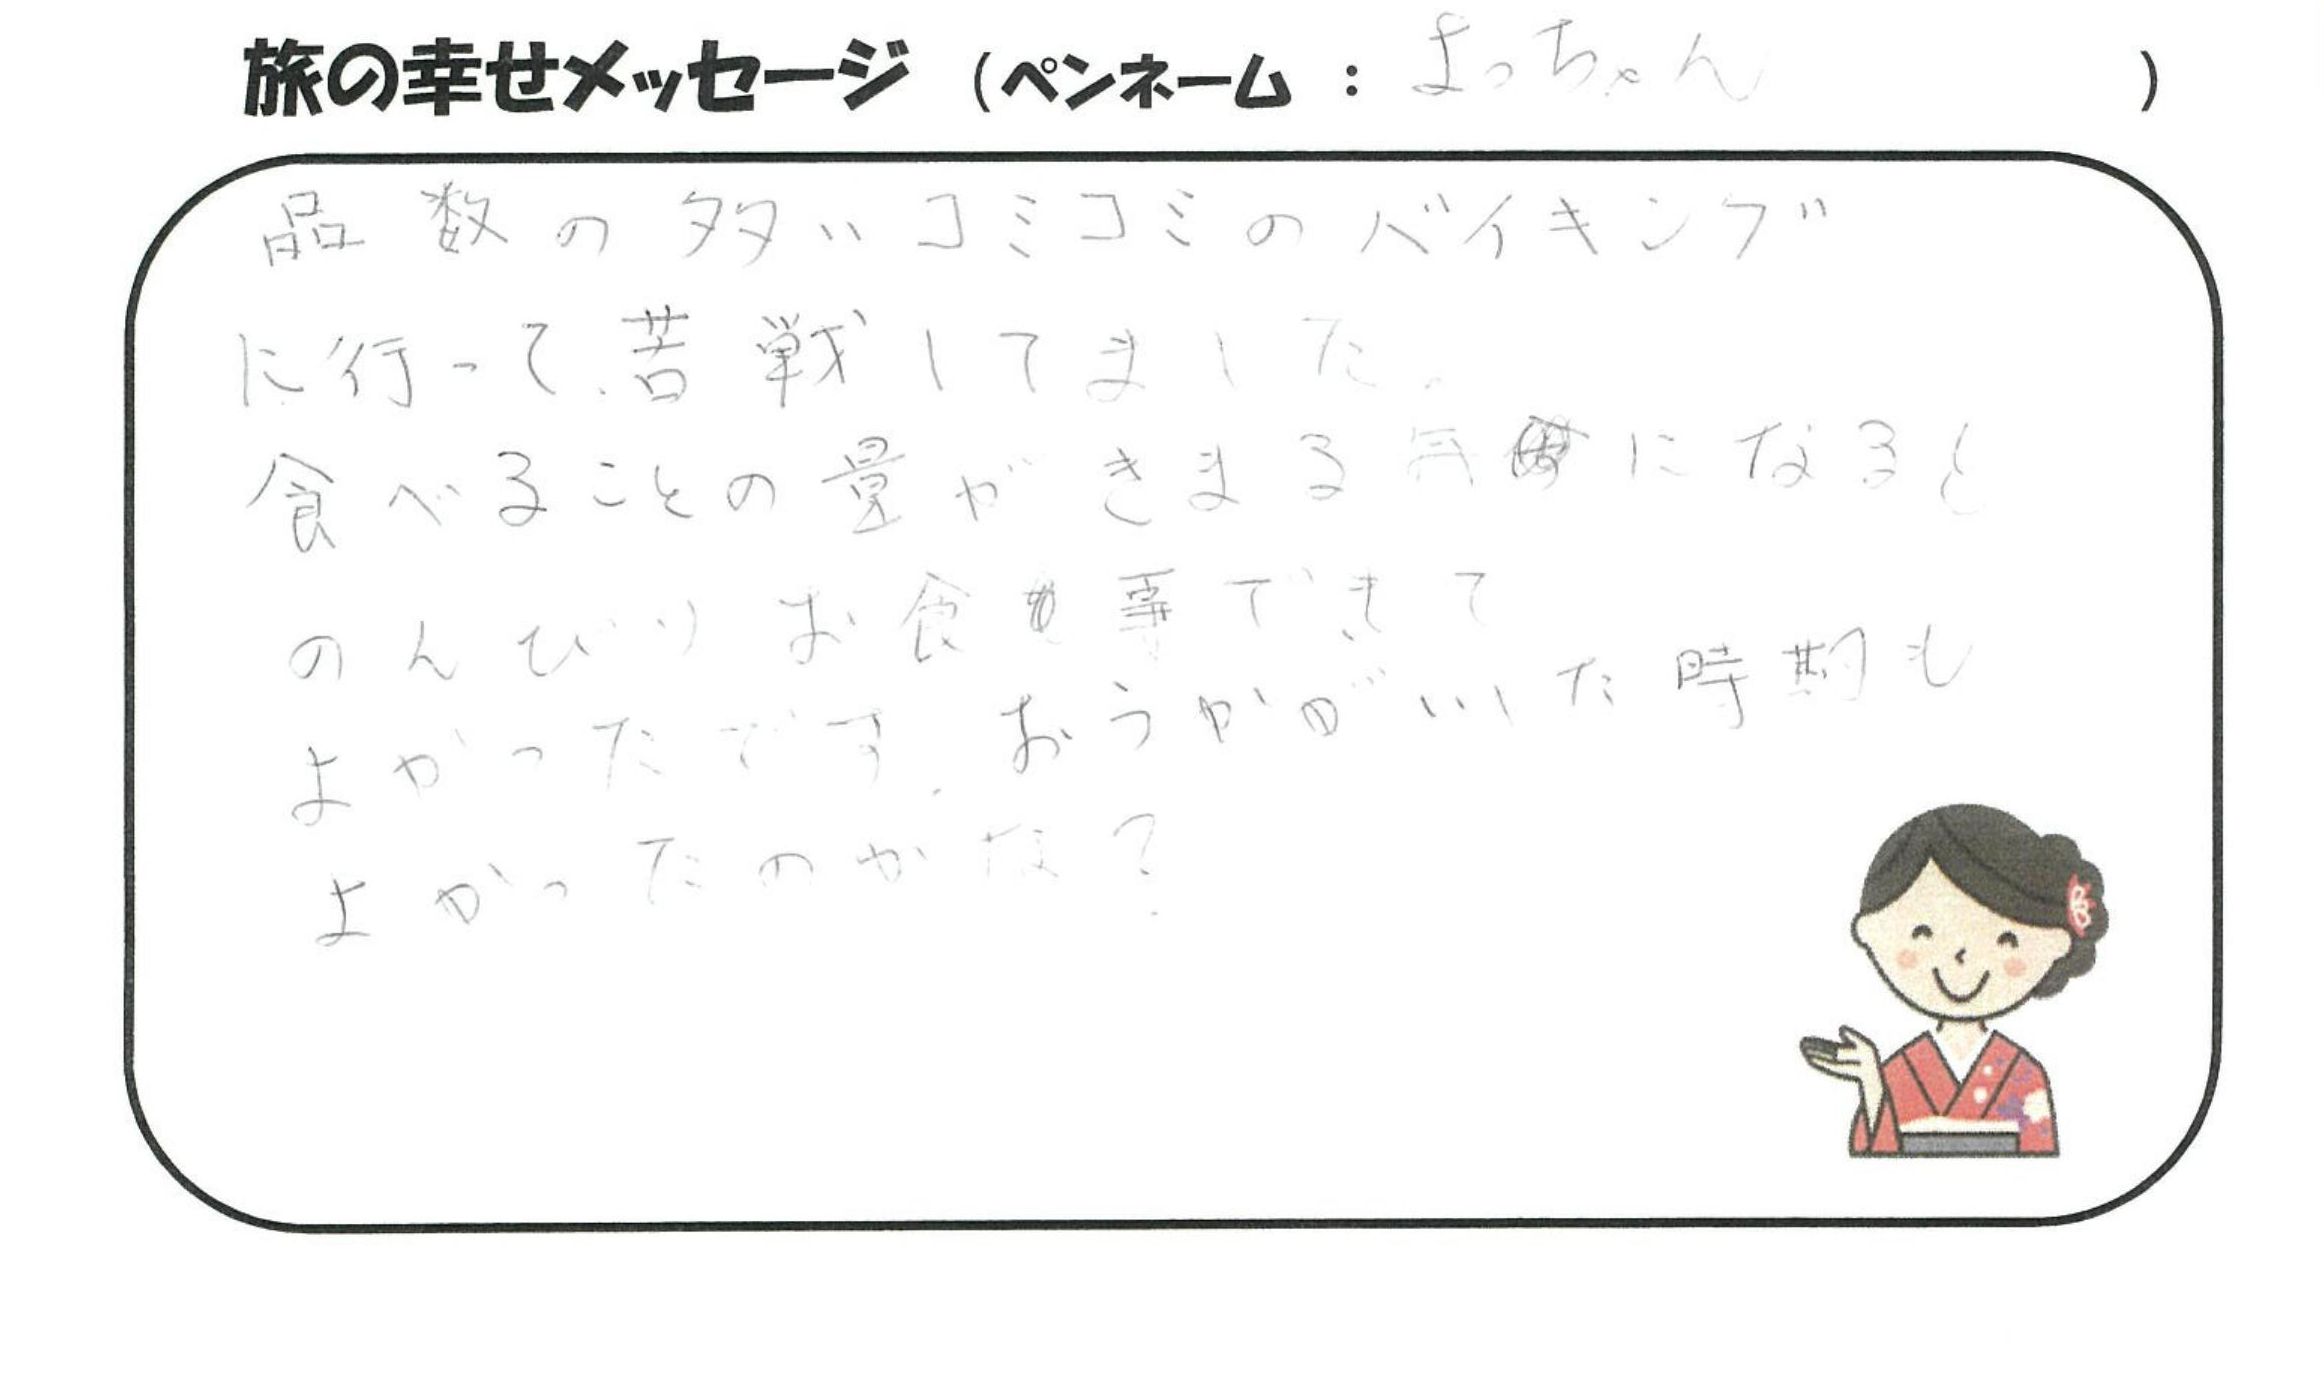 旅の幸せメッセージ (ペンネーム : よっちゃん )
品数の多いコミコミのバイキング
に行って、苦戦してました。
食べることの量がきまる年になると
のんびりお食事できて
よかったです。おうかがいした時期も
よかったのかな?